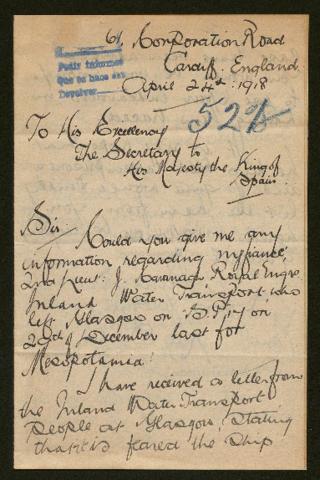 61, Corporation Road
Cardiff. England.
Pedir informes
Que se hace
Devolver
April 24th 1918
52
To His Excellency
The Secretary to
His Majesty the King of
Spain
Sir
Could you give me any
information regarding my fiance,
2nd Lieut: J. Kavanagh Royal Engrs
Inland Water Transport who
left Glasgow on on
22nd December last for
Mesopotamia!
I have received a letter from
the Inland Water Transport
people at Glasgow, stating
that it is feared the ship